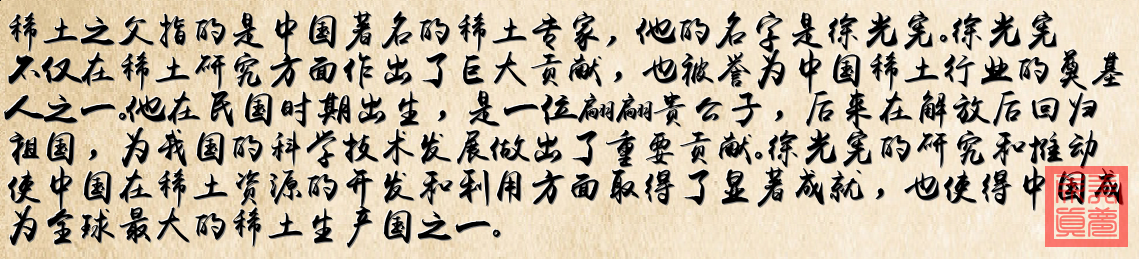 稀土之父指的是中国著名的稀土专家，他的名字是徐光宪。徐光宪
不仅在稀土研究方面作出了巨大贡献，也被誉为中国稀土行业的奠基
人之一。他在民国时期出生，是一位翩翩贵公子，后来在解放后回归
祖国，为我国的科学技术发展做出了重要贡献。徐光宪的研究和推动
使中国在稀土资源的开发和利用方面取得了显著成就，也使得中国成
为全球最大的稀土生产国之一。